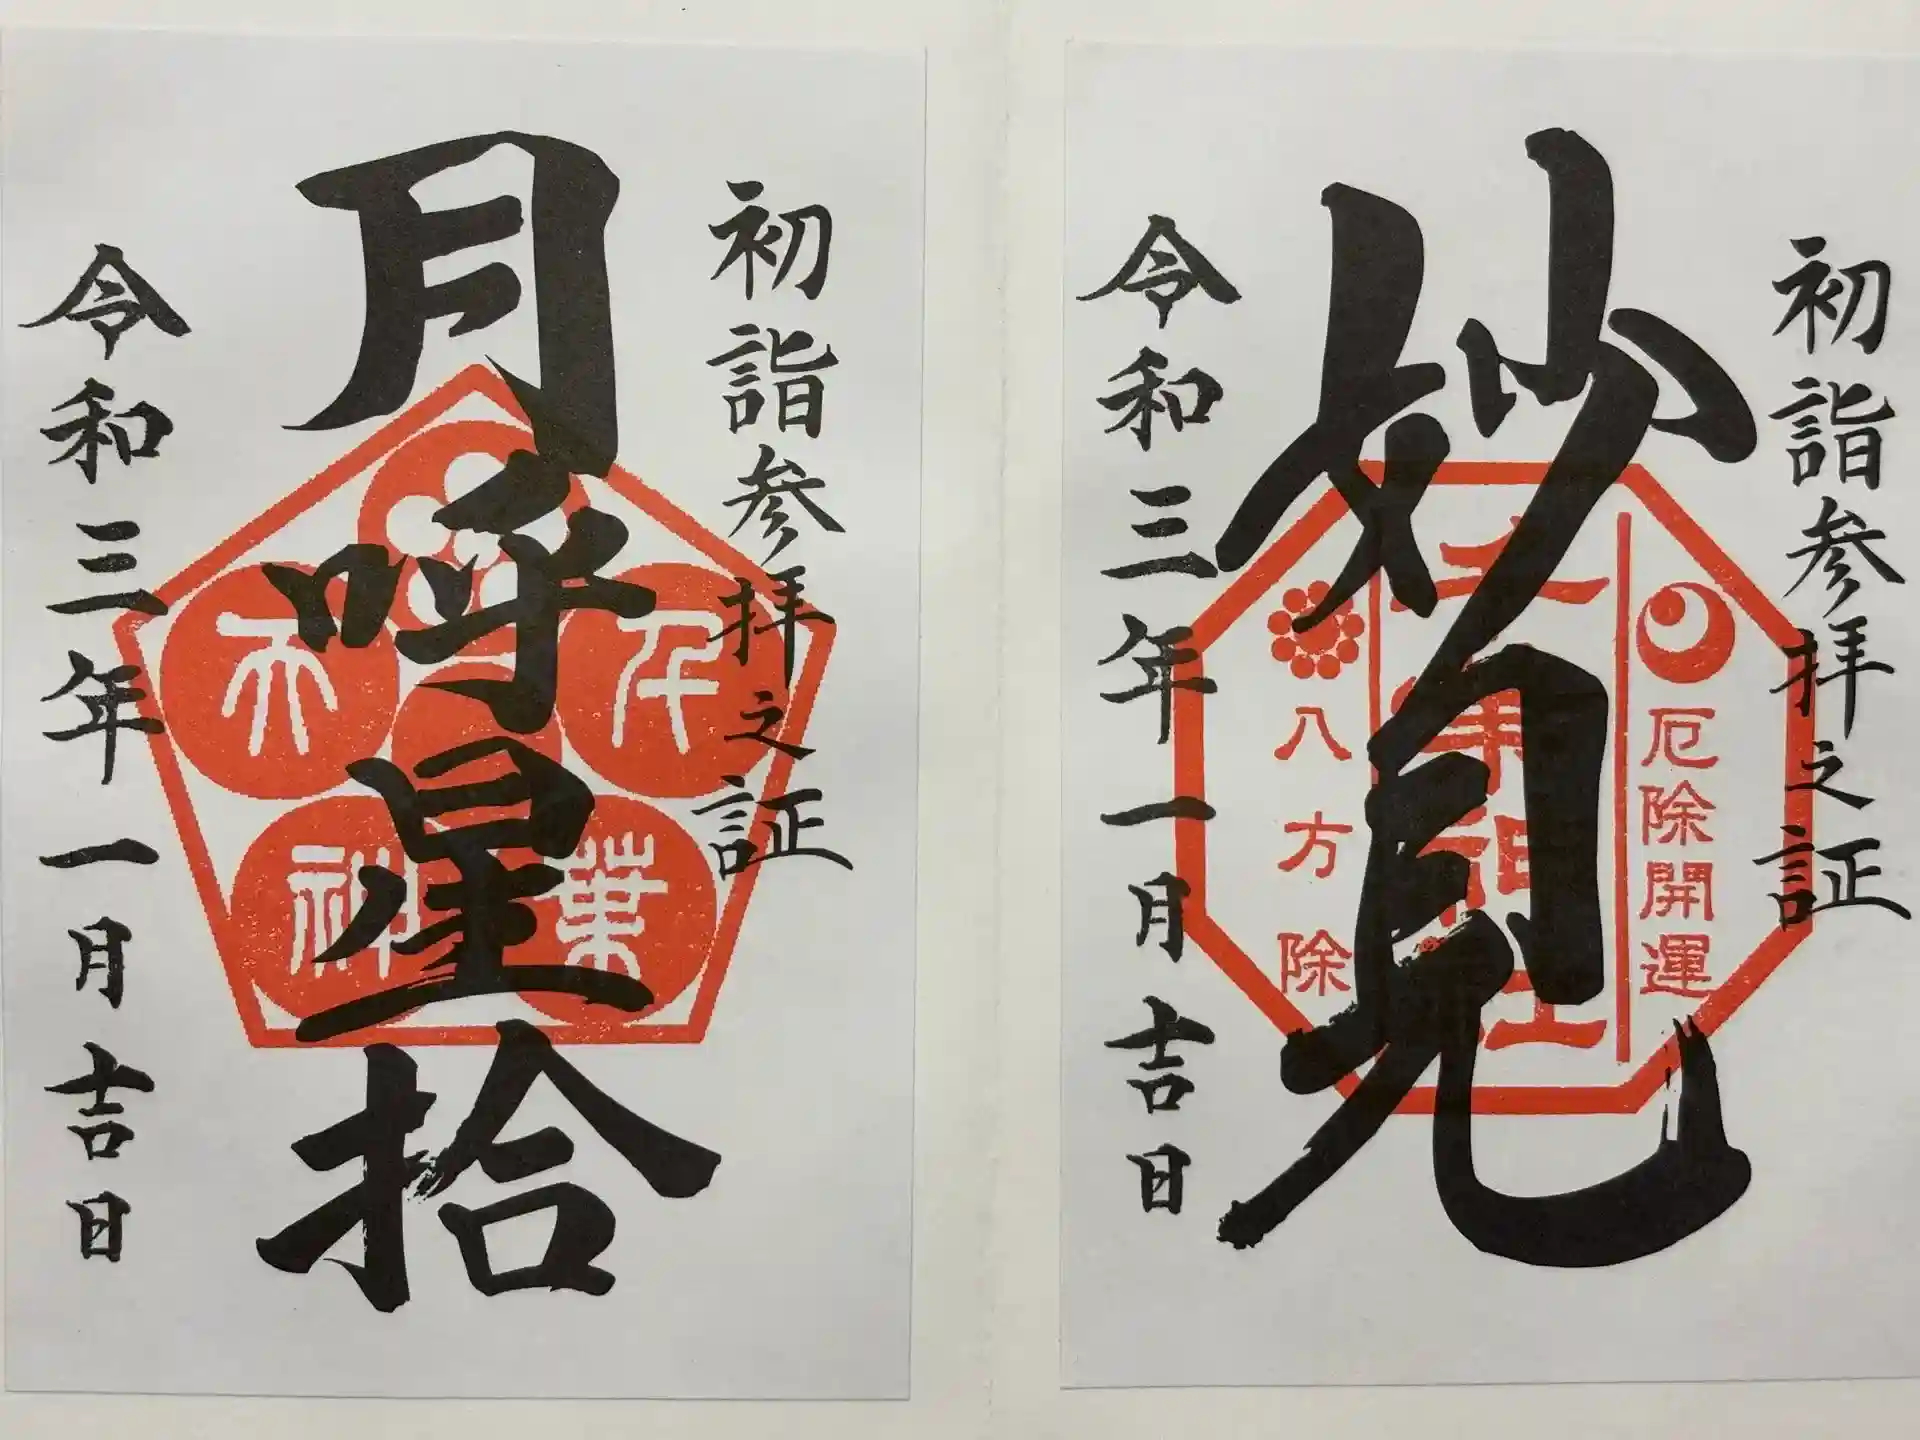 初詣参拝之証
妙見
厄除開運
千葉神社
八方除
令和三年一月吉日
初詣参拝之証
月呼星拾
千葉
天神
令和三年一月吉日